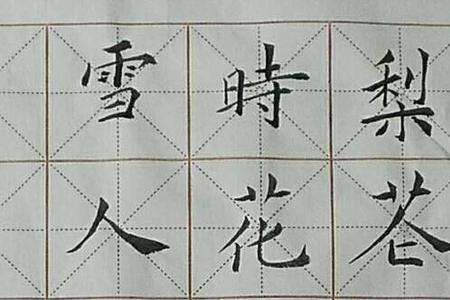 梨花
時花
雪人